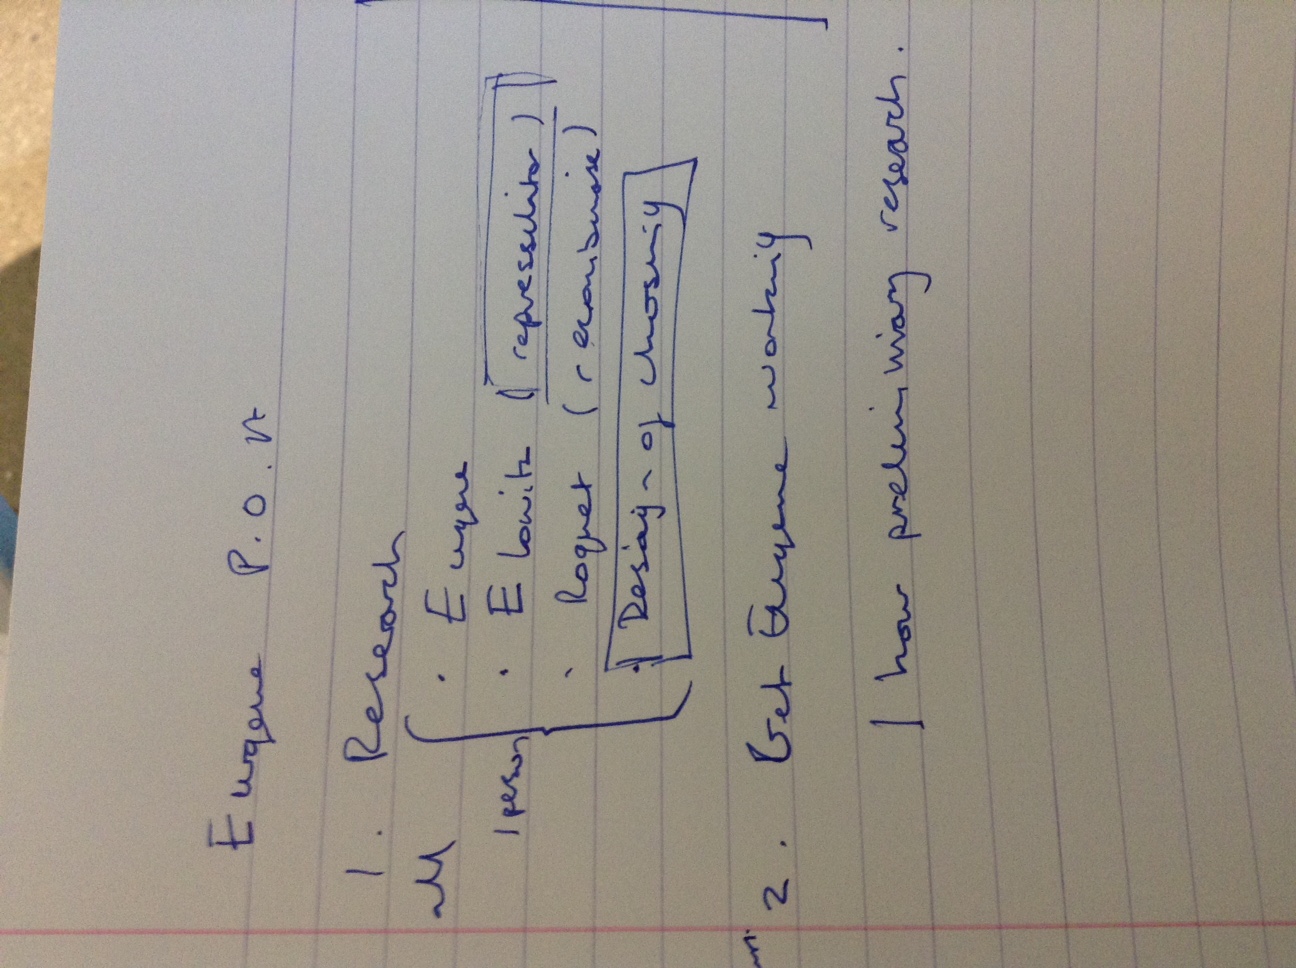 Eugene P.O.A
1. Research
all
· Eugene
1 person
· Elowitz (repressilator)
· Roquet (recombinase)
· Design of choosing
2. Get Eugene working
1 hour preliminary research.